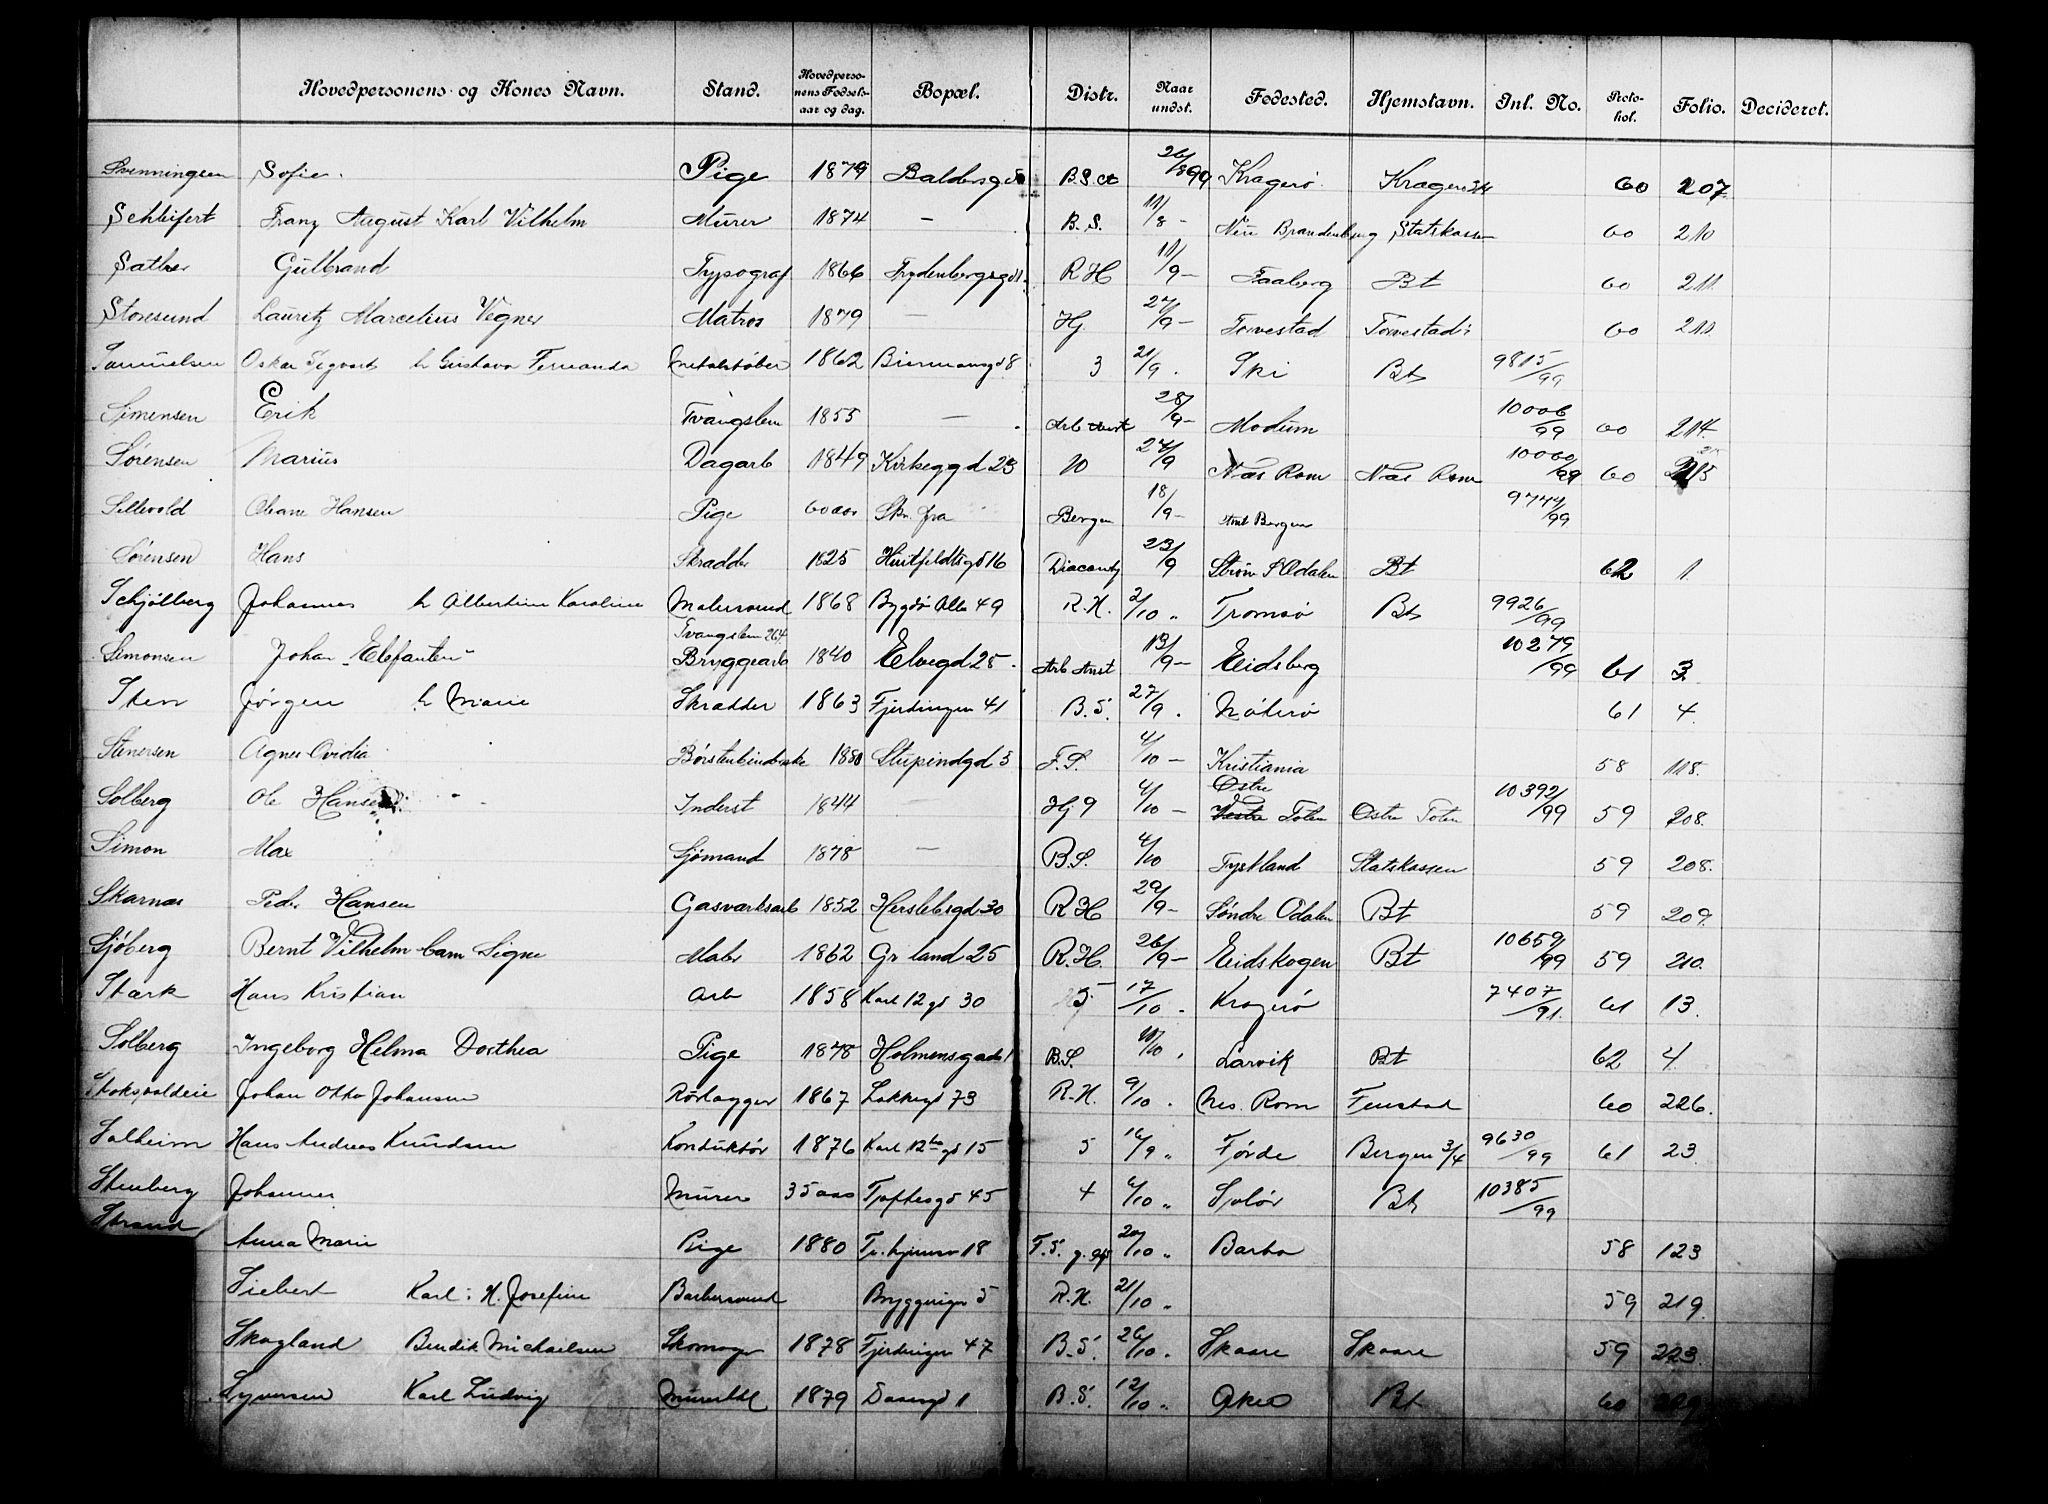 Hovedpersonens og Kones Navn. Stand. Hovedpersonens Fødselsaar og dag. Bopæl. Distr. Naar undst. Fødested. Hjemstavn. Inl. No. Protokol. Folio. Decideret.
Svenningsen Sofie. Pige 1879 B.S. 26/8 99 Kragerø Kragerø 60 207
Franz August Karl Vilhelm Murer 1874 — B.S. 11/8 - Neu Brandenburg Statskassen 60 210
Sæther Gulbrand Typograf 1866 R H 11/9 - Faaberg Bt 60 211
Storesund Lauritz Marcelius Vegner Matros 1879 — Hj 27/9 - Torvestad Torvestad 60 210
Samuelsen Oskar Sigvart h Gustava Fernanda Metalstøber 1862 3 21/9 . Ski Bt 9815/99
Simensen Erik Tvangslem 1855 — 28/9 - Modum 10006/99 60 214
Sørensen Marius Dagarb 1849 Kirkeggd 23 10 27/9 Næs Rom Næs Rom 10000/99 60 215
Sillevold Oleane Hansen Pige 60 aar Skr. fra Bergen 18/9 - Bergen 9744/99
Sørensen Hans Skrædder 1825 Huitfeldtsgd 16 23/9 Strøm S Odalen Bt 62 1
Schjølberg Johannes h Albertine Karoline Malersvend 1868 Bygdø Alle 49 R.H. 2/10 " Tromsø Bt 9926/99
Tvangslem 264
Simonsen Johan "Elefanten" Bryggearb 1840 Elvegd 25 Arb Anst 13/9 - Eidsberg 10279/99 61 3
Sten Jørgen h Marie Skrædder 1863 Fjerdingen 41 B.S. 27/9 . Nøterø 61 4
Stenersen Agnes Ovidia Børstenbinderske 1880 Stupindgd 5 F.S. 4/10 - Kristiania 58 118
Østre
Solberg Ole Hansen Inderst 1844 — Hj 9 4/10 - Vestre Toten Østre Toten 10392/99 59 208
Simon Max Sjømand 1878 — B.S. 4/10 Tyskland Statskassen 59 208
Skarnæs Peder Hansen Gasværksarb 1852 Herslebsgd 30 R H 29/9 - Søndre Odalen Bt 59 209
Sjøberg Bernt Vilhelm barn Signe Maler 1862 Grland 25 R.H. 26/9 - Eidskogen Bt 10659/99 59 210
Stærk Hans Kristian Arb 1858 Karl 12 gd 30 5 17/10 . Kragerø 7407/91 61 13
Solberg Ingeborg Helma Dorthea Pige 1878 Holmensgade 1 B.S. 11/10 . Larvik Bt 62 4
Johan Otto Johansen Rørlægger 1867 Lakkegd 73 R.H. 9/10 . Nes. Rom Fenstad 60 226
Solheim Hans Andreas Knudsen Konduktør 1876 Karl 12te gd 15 5 16/9 " Førde Bergen 3/4 9630/99 61 23
Stenberg Johannes Murer 35 aar Toftesgd 45 4 6/10 " Solør Bt 10385/99
Strand Anna Marie Pige 1880 F.S. 20/10 " Barbo 58 123
Siebert Karl: H. Josefine Barbersvend 5 R.H. 21/10 " 59 219
Skogland Bendik Michaelsen Skomager 1878 Fjerdingen 47 B.S. 26/10 . Skaare Skaare 59 223
Syversen Karl Ludvig 1879 Daasgd 1 B.S. 12/10 " Aker Bt 60